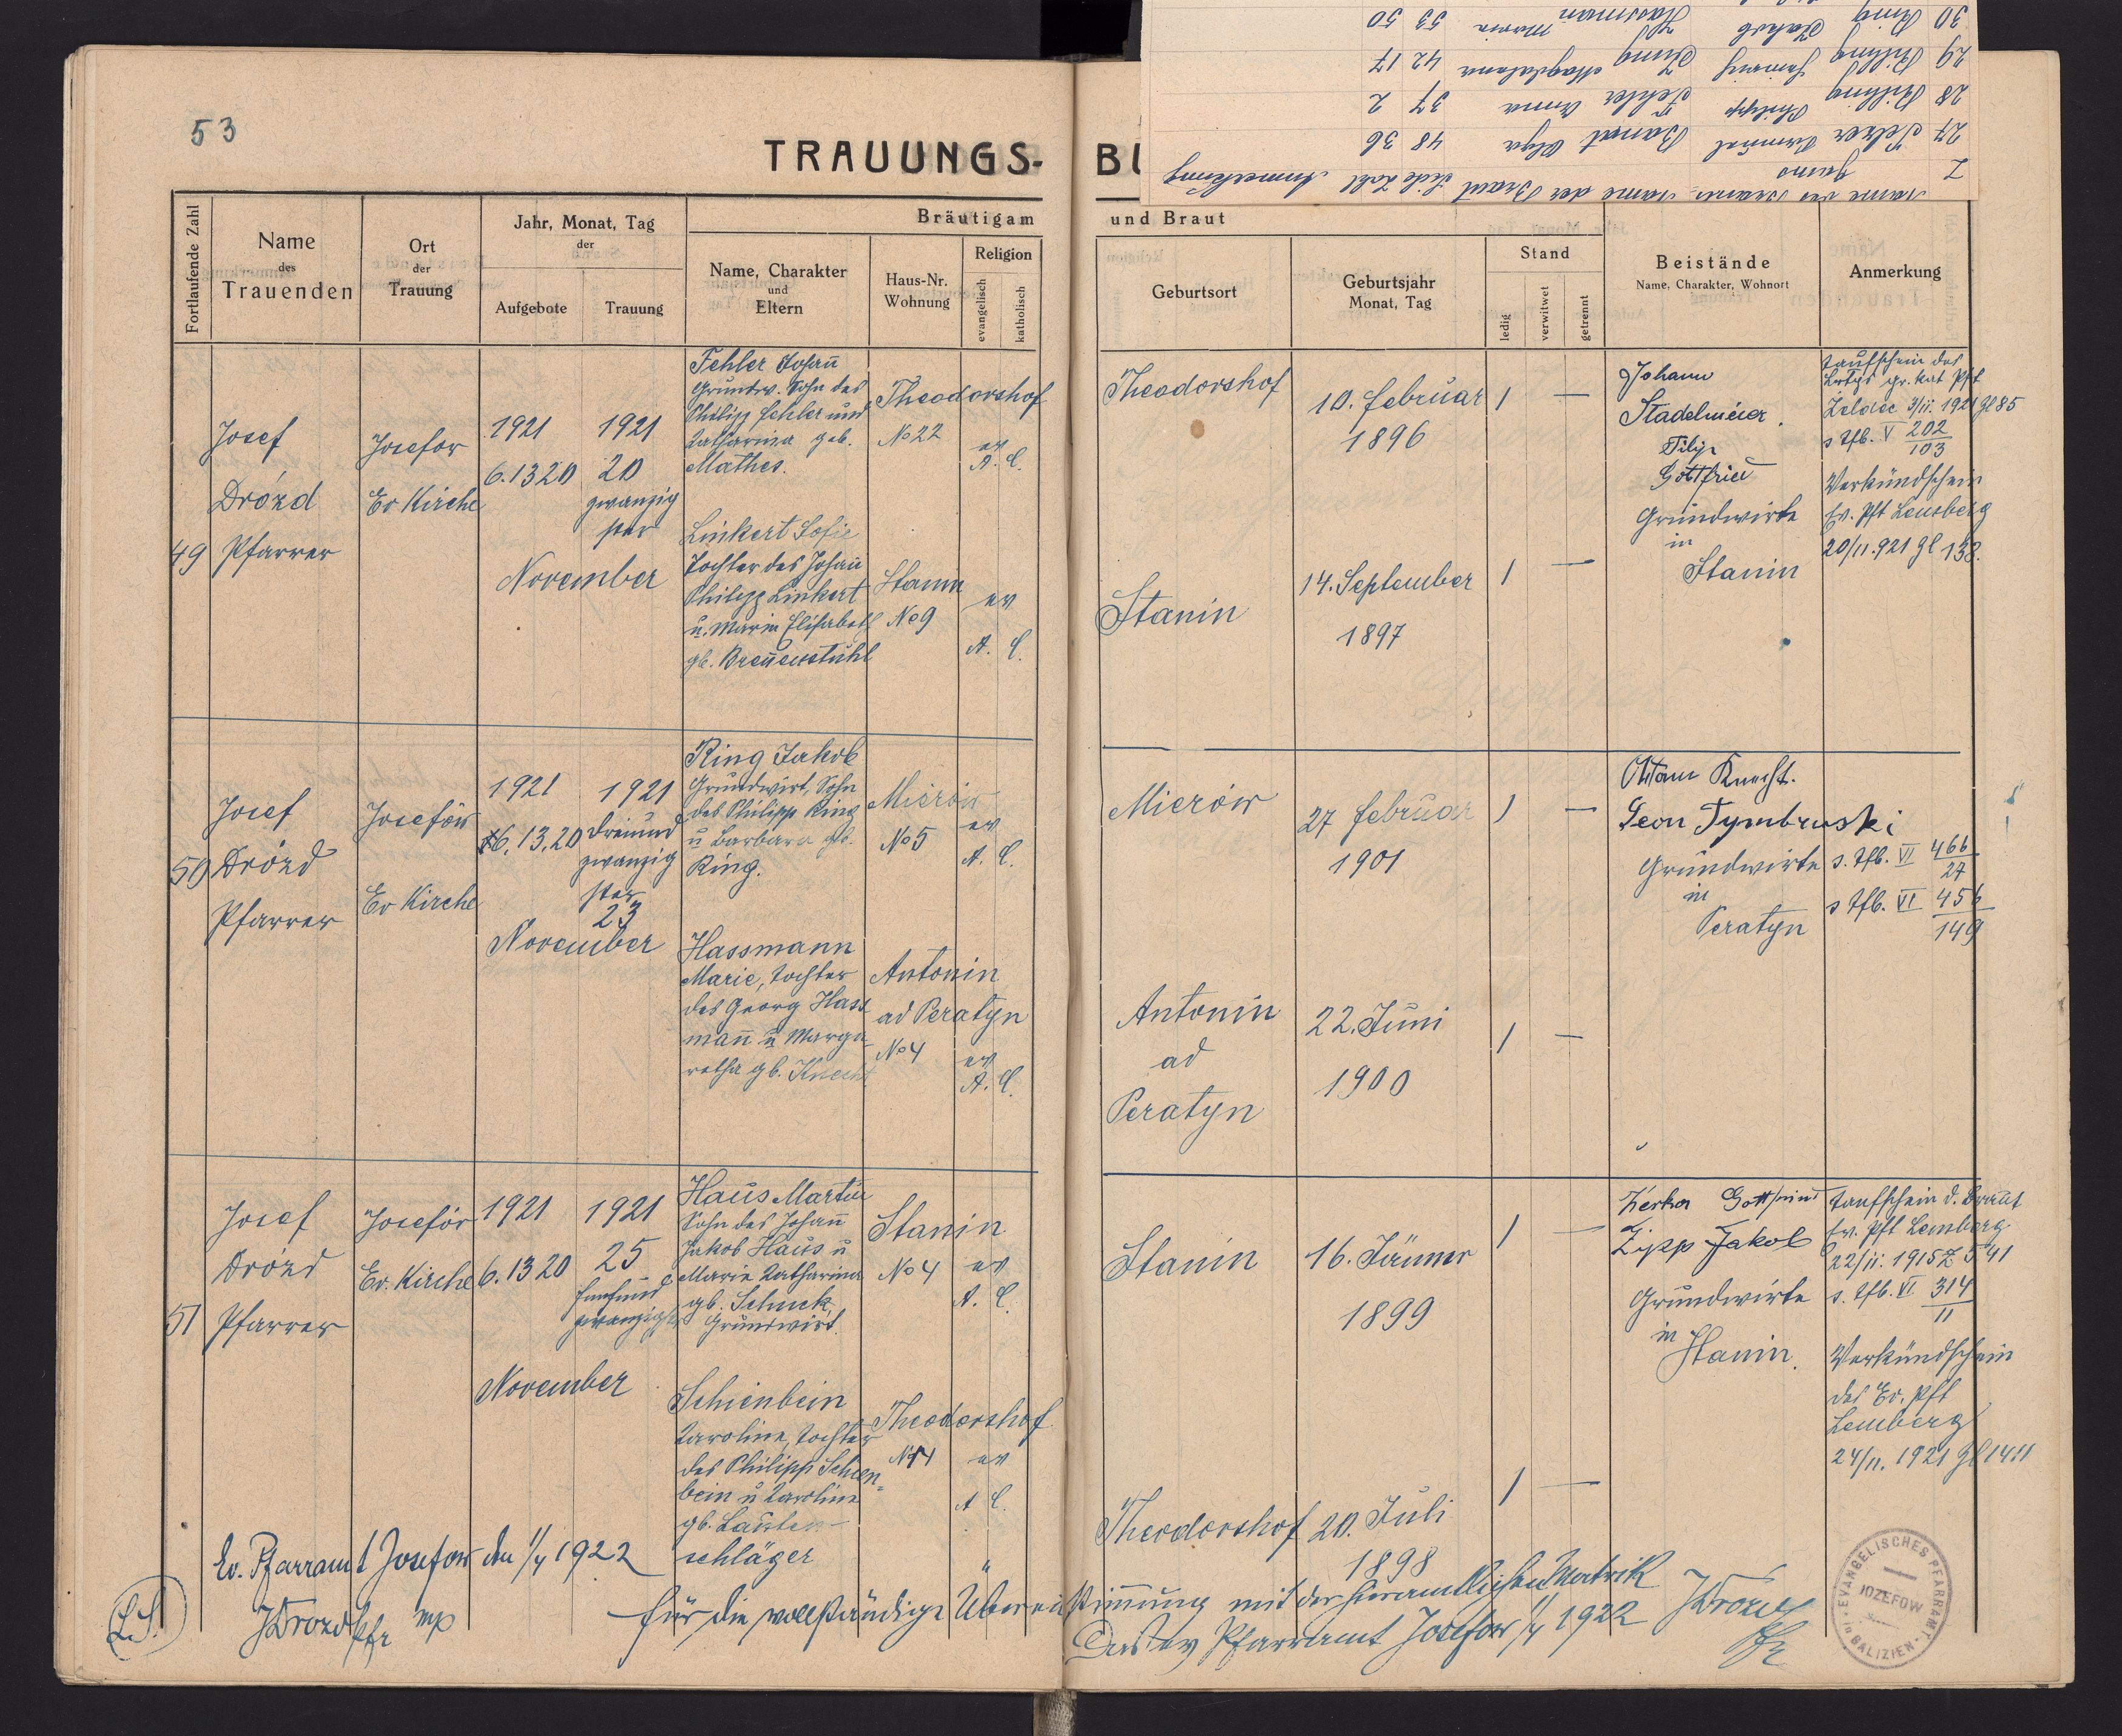 53
TRAUUNGS-
Fortlaufende Zahl
Name
des
Trauenden
Ort
der
Trauung
Jahr, Monat, Tag
der
Aufgebote
Trauung
Bräutigam
Name, Charakter
und
Eltern
Haus-Nr.
Wohnung
Religion
evangelisch
katholisch
und Braut
Geburtsort
Geburtsjahr
Monat, Tag
Stand
ledig
verwitwet
getrennt
Beistände
Name, Charakter, Wohnort
Anmerkung
49
Josef
Drózd
Pfarrer
Josefow
Ev Kirche
1921
6.13 20
1921
20
zwanzig
ster
November
Fehler Johann
Grundw. Sohn des
Philipp Fehler und
Katharina geb.
Mathes.
Theodorshof
No 22
ev
A. C.
Linkert Sofie
Tochter des Johann
Philipp Linkert
u. Maria Elisabeth
gb. Brennenstuhl
Stanin
No 9
ev
A. C.
Theodorshof
10. Februar
1896
1 —
Stanin
14. September
1897
1 —
Johann
Stadelmeier.
Filip
Gottfried
Grundwirte
in
Stanin
Taufschein des
gr. kat Pft
3/ii. 1921 Zl 85
s Tfb. V 202
103
Verkündschein
Ev. Pft Lemberg
20/11. 921 Zl 138.
50
Josef
Drózd
Pfarrer
Josefów
Ev Kirche
1921
6, 13, 20
1921
dreiund
zwanzig
ster
23
November
Ring Jakob
Grundwirt, Sohn
des Philipp Ring
u Barbara gb.
Ring.
Mierów
No 5
ev
A. C.
Hassmann
Marie, Tochter
des Georg Hass
mann u Marga-
retha gb. Knecht
Antonin
ad Peratyn
No 4
ev
A. C.
Mierów
27 Februar
1901
1 —
Antonin
ad
Peratyn
22. Juni
1900
1 —
Knecht.
Leon Tymbruski
Grundwirte
in
Peratyn
s. Tfb. VI 466
27
s Tfb. VI 456
149
51
Josef
Drózd
Pfarrer
Josefów
Ev. Kirche
1921
6. 13 20
1921
25
fünfund
zwanzigster
November
Haus Martin
Sohn des Johann
Jakob Haus u
Maria Katharina
gb. Schuck,
Grundwirt.
Stanin
No 4
ev
A. C.
Schienbein
Karoline, Tochter
des Philipp Schien-
bein u Karoline
gb. Lauten-
schläger
Theodorshof
No 4
ev
A C.
Stanin
16. Jänner
1899
1 —
Theodorshof
20. Juli
1898
1 —
Zerker Gottfried
Zipp Jakob
Grundwirte
in
Stanin.
Taufschein d. Braut
Ev. Pft Lemberg
22/ii. 1915 Z 541
s. Tfb. VI 314
11
Verkündschein
des Ev. Pft
Lemberg
24/11. 1921 Zl 1411
Ev. Pfarramt Josefow den 1/4 1922
L.S.
JDrozd Pfr mp
für die vollständige Übereinstimmung mit der hieramtlichen Matrik
Das ev Pfarramt Josefow 1/4 1922
JDrozd
Pfr
EVANGELISCHES PFARRAMT
JOZEFOW
in GALIZIEN
Name der Braut Seite Zahl Anmerkung
27 Selzer Banat Olga 48 36
28 Rilling Philipp Fehler Anna 37 2
29 Rilling Heinrich Jung Magdalena 42 17
30 Ring Jakob Hassman Maria 53 50